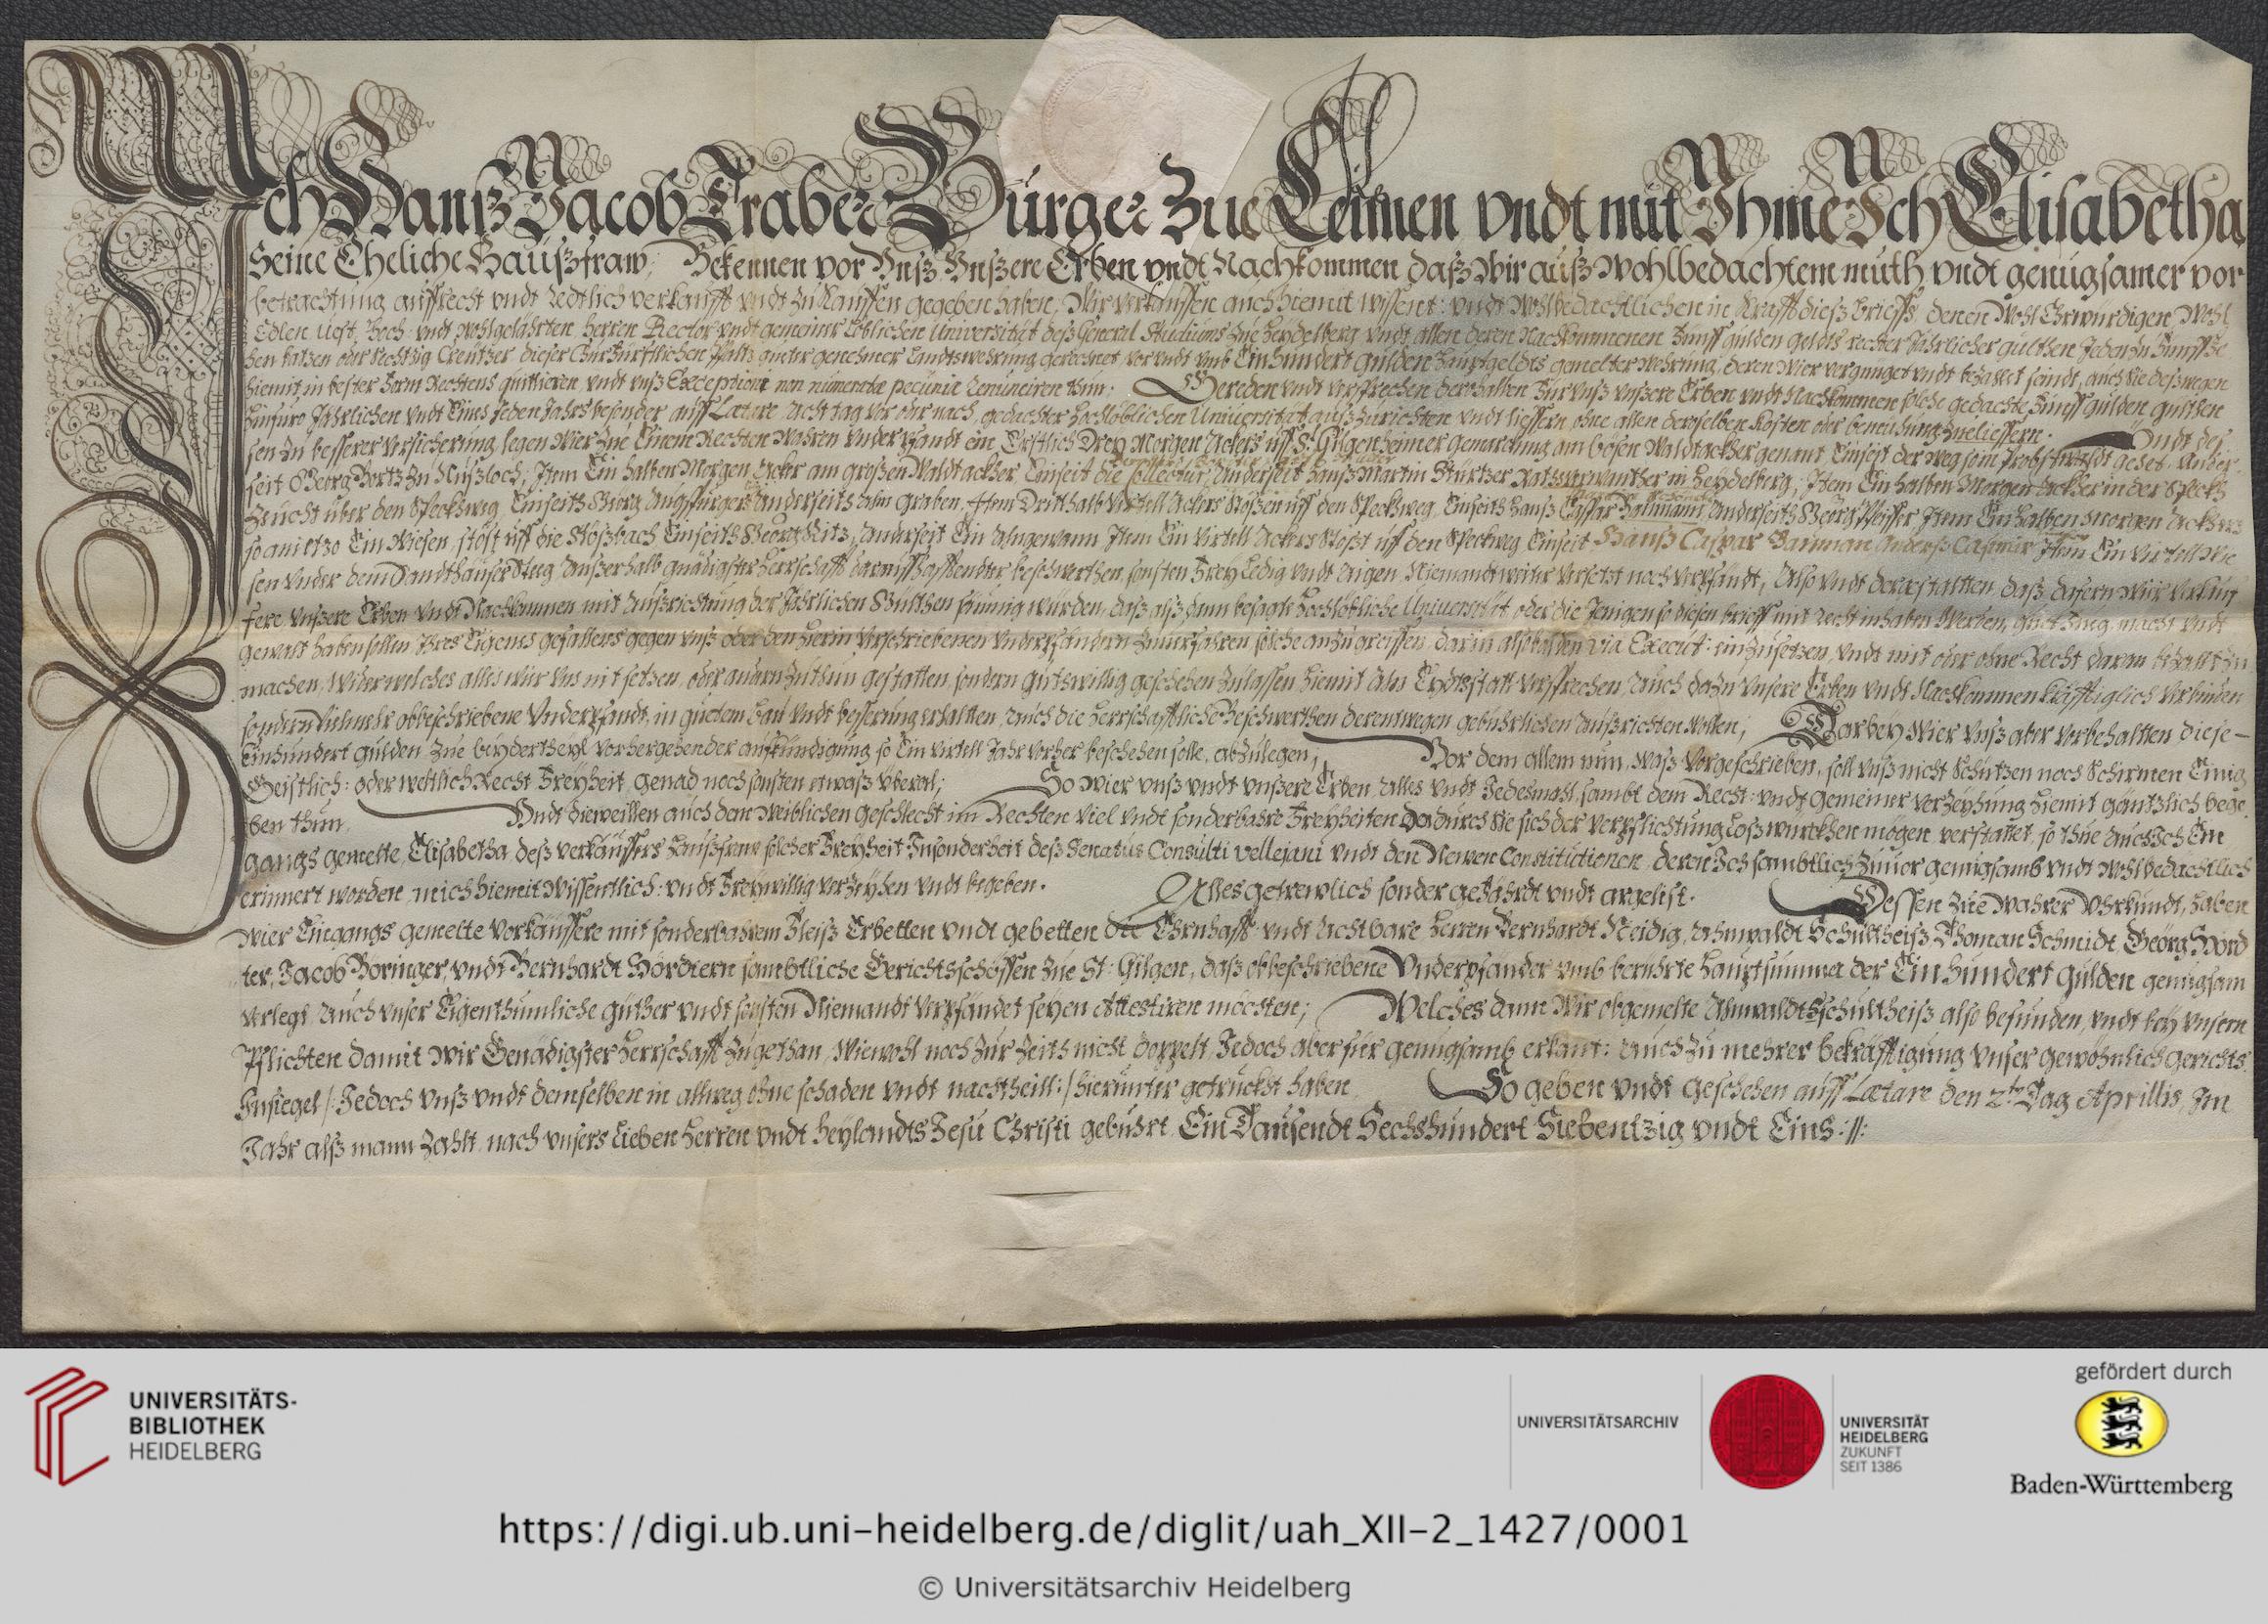 Ich Hanß Jacob Traber Bürger Zue Leimen vndt mit Ihme Ich Elisabetha
Seine Eheliche Haußfraw, Bekennen vor Vnß Vnßere Erben vndt Nachkommen daß Wir auß Wohlbedachtem muth, vndt genugsamer vor
betrachtung auffrecht vndt Redtlich verkaufft vndt zu Kauffen gegeben haben, Wir verkauffen auch hiemit wissent: vndt Wohlbedächtlichen in Krafft dieß brieffs, denen Wohl Ehrwürdigen, Wohl
Edlen, Vest, Hoch: vndt Wohlgelährten Herren Rector vndt gemeiner Löblichen Universität deß General Studiums Zue Heydelberg vndt allen deren Nachkommenen Fünff gülden gelts rechter Jährlicher gülthen Jeden zu Funffze
hen batzen oder Sechtzig Creutzer dieser Churfürstlichen Pfaltz gueter genehmer Landtswehrung gerechnet vor vndt vmb Einhundert gülden haüptgeldts gemelter Wehrung, deren Wier vergnüget vndt bezahlt seindt, auch Sie deßwegen
hiemit in bester Form Rechtens quittieren vndt vnß Exceptione non numeratæ pecuniæ renunciren thun; Gereden vndt versprechen derohalben Für vnß vnßere Erben vndt Nachkommen solche gedachte Fünff gülden gülthen
hinfüro Jährlichen vndt Eins Jeden Jahrs besonder auff Lætare Acht tag vor oder nach, gedachter Hochlöblichen Universitet außzurichten vndt lieffern, ohne allen derselben Kosten oder bemühung Zueliessern. Vndt des
sen Zu besserer Versicherung, legen Wier Zue Einem Rechten Wahren Vnderpfandt ein, Erstlich Drey Morgen Ackers uff St: Gilgenheimer gemarckung am bösen Waldtacker genant, Einseit der Weg so im Probstwaldt gehet, Ander-
seit Georg Bortz Zu Nußloch; Item Ein halben Morgen Acker am großen Waldtacker, Einseit die Collectur, Anderseit Hanß Martin Stürtzer Rathsverwanther in Heydelberg; Item Ein halben Morgen Acker in der Speck
Zeücht über den Speckweg, Einseits Georg Augspurger Anderseits Am Graben, Item Dritthalb Virtell Ackers Stoßen uff den Speckweg, Einseits Hanß Caspar Anderseits Georg Pfeiffer Item Ein halben Morgen Ackhers
so anietzo Ein Wiesen, stöst uff die Stoßbach Einseits Georg Seitz, Anderseit Ein Angewann Item Ein Virtell Ackers Stöst uff den Speckweg Einseit Hanß Caspar Anderß Casimir Item Ein Virtell Wie
sen Vnder dem Sandthäuser Steeg Außerhalb gnädigster Herrschafft daruff hafftendter beschwerthen, sonsten Frey Ledig vndt Aigen, Niemandt weiter versetzt noch verpfandt, Also vndt derogestaltten, daß dafern Wier Verkäuf
fere Vnßere Erben Vndt Nachkommen mit Außrichtung der Jährlichen Gülthen säumig würden, daß alß dann besagte Hochlöbliche Universität oder die Jenigen so diesen brieff mit Recht inhaben Werden, guet Fueg, macht vndt
gewalt haben sollen Ihres Eigens gefallens gegen vnß oder den hierin Verschriebenen Vnderpfändern Zuverfahren solche anzugreiffen, darin alsobalden Via Execut: einzusetzen, vndt mit oder ohne Recht daran bezahlt zu
machen, Wider welches alles Wir Vns nit setzen, oder andern Zuthun gestatten, sondern gutwillig geschehen Zulassen hiemit Ahn Eydtsstatt Versprechen, Auch dazu Vnsere Erben vndt Nachkommen kräfftiglich Verbinden
sondern Vielmehr obbeschriebene Vnderpfandt, in guetem bau vndt besserung erhaltten, Auch die Herrschafftliche Beschwerthen derentwegen gebührlichen Außrichten Wollen; Darbey Wier Vnß aber Vorbehaltten diese-
Einhundert gülden Zue beydertheyl Vorhergehender auffkündigung so Ein Virtell Jahr Vorher beschehen solle, abzulegen; Vor dem allem nun, Waß Vorgeschrieben, soll Vnß nicht Schützen noch Schirmen Einig
Geistlich: oder weltlich Recht Freyheit, Genad noch sonsten etwaß überal; So Wier vnß vndt vnßere Erben, Alles vndt Jedesmahl, sambt dem Recht: vndt Gemeiner Verzeyhung hiemit gäntzlich bege
ben thun. Vndt dieweillen auch dem Weiblichen Geschlecht im Rechten Viel vndt sonderbahre Freyheiten Dadurch Sie sich der Verpflichtung Loßwürckhen mögen, verstattet, so thue Auch Ich Ein
gangs gemelte Elisabetha deß Verkäuffers Haußfraw solcher Freyheit Insonderheit deß Senatus Consulti Vellejani vndt den Newen Constitutionen, deren Ich sambtlich Zuvor genugsamb vndt Wohlbedächtlich
erinnert worden, mich hiemit Wissentlich: vndt Freywillig Verzeyhen vndt begeben. Alles getrewlich sonder gefährdt vndt argelist. Dessen Zue Wahrer Vhrkundt, haben
Wier Eingangs gemelte Verkäuffere mit sonderbahrem Fleiß Erbetten vndt gebetten die Ehrnhafft vndt Achtbare Herren Bernhardt Neidig, Ahnwaldt Schultheiß Thoman Schmidt, Georg Hörd
ter, Jacob Boringer, vndt Bernhardt Hördtern sambtliche Gerichtsschöffen Zue St: Gilgen, daß obbeschriebene Vnderpfänder vmb berührte hauptsumma der Einhundert gülden genugsam
Verlegt Auch Vnser Eigenthumliche güther vndt sonsten Niemandt Verpfändet seyen Attestiren möchten; Welches dann Wir obgemelte Ahnwaldtsschultheiß also befunden, vndt bey Vnsern
Pflichten damit Wir Genädigster Herrschafft Zugethan, Wiewohl noch Zur Zeith nicht doppelt, Jedoch aber für genugsamb erkant: Auch Zu mehrer bekräfftigung Vnser Gewöhnlich Gerichts
Insiegel /: Jedoch Vnß vndt demselben in allweg ohne schaden vndt nachtheill :/ hierunter getruckht haben. So geben vndt Geschehen auff Lætare den 2te Tag Aprillis, Im
Jahr alß mann Zahlt nach Vnsers Lieben Herren vndt Heylandts Jesu Christi gebuhrt Ein Tausendt Sechshundert Siebentzig vndt Eins ://:
UNIVERSITÄTS-
BIBLIOTHEK
HEIDELBERG
UNIVERSITÄTSARCHIV
UNIVERSITÄT
HEIDELBERG
ZUKUNFT
SEIT 1386
gefördert durch
Baden-Württemberg
https://digi.ub.uni-heidelberg.de/diglit/uah_XII-2_1427/0001
© Universitätsarchiv Heidelberg